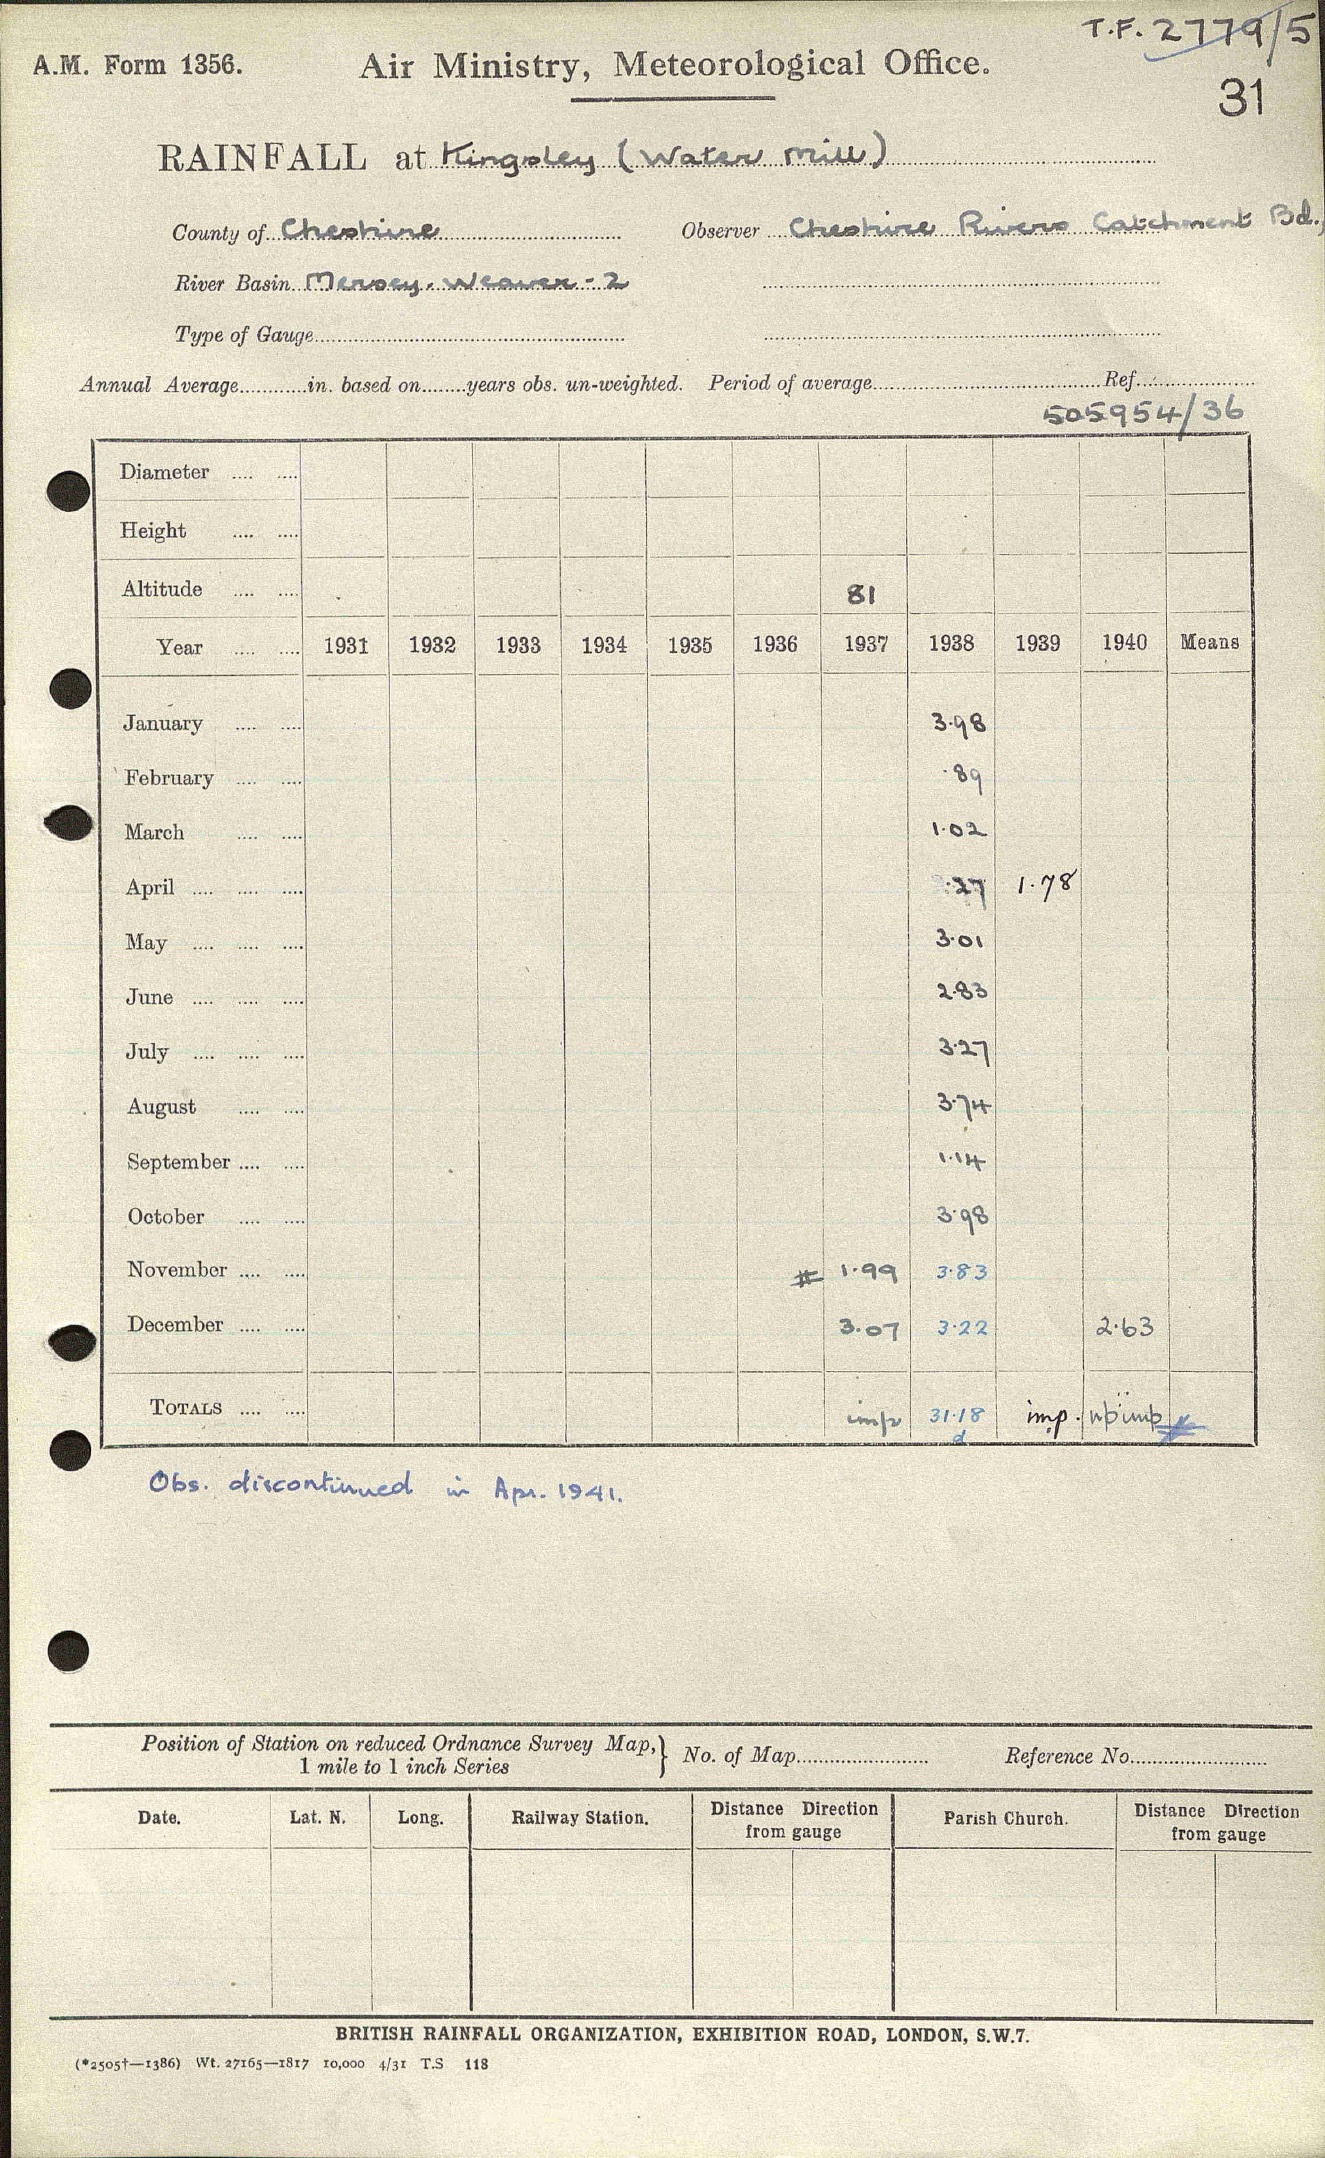 T.F. 2779/5
A.M. Form 1356.
Air Ministry, Meteorological Office.
31
RAINFALL at Kingsley (Water Mill)
County of Cheshire
Observer Cheshire Rivers Catchment Bd.,
River Basin Mersey. Weaver - 2
Type of Gauge
Annual Average in. based on years obs. un-weighted. Period of average Ref.
505954/36
Diameter
Height
Altitude 81
Year 1931 1932 1933 1934 1935 1936 1937 1938 1939 1940 Means
January 3.98
February .89
March 1.02
April .27 1.78
May 3.01
June 2.83
July 3.27
August 3.74
September 1.14
October 3.98
November # 1.99 3.83
December 3.07 3.22 2.63
TOTALS imp 31.18 imp.
d
Obs. discontinued in Apr. 1941.
Position of Station on reduced Ordnance Survey Map, } No. of Map Reference No
1 mile to 1 inch Series
Date. Lat. N. Long. Railway Station. Distance Direction from gauge Parish Church. Distance Direction from gauge
BRITISH RAINFALL ORGANIZATION, EXHIBITION ROAD, LONDON, S.W.7.
(*2505†—1386) Wt. 27165—1817 10,000 4/31 T.S 118